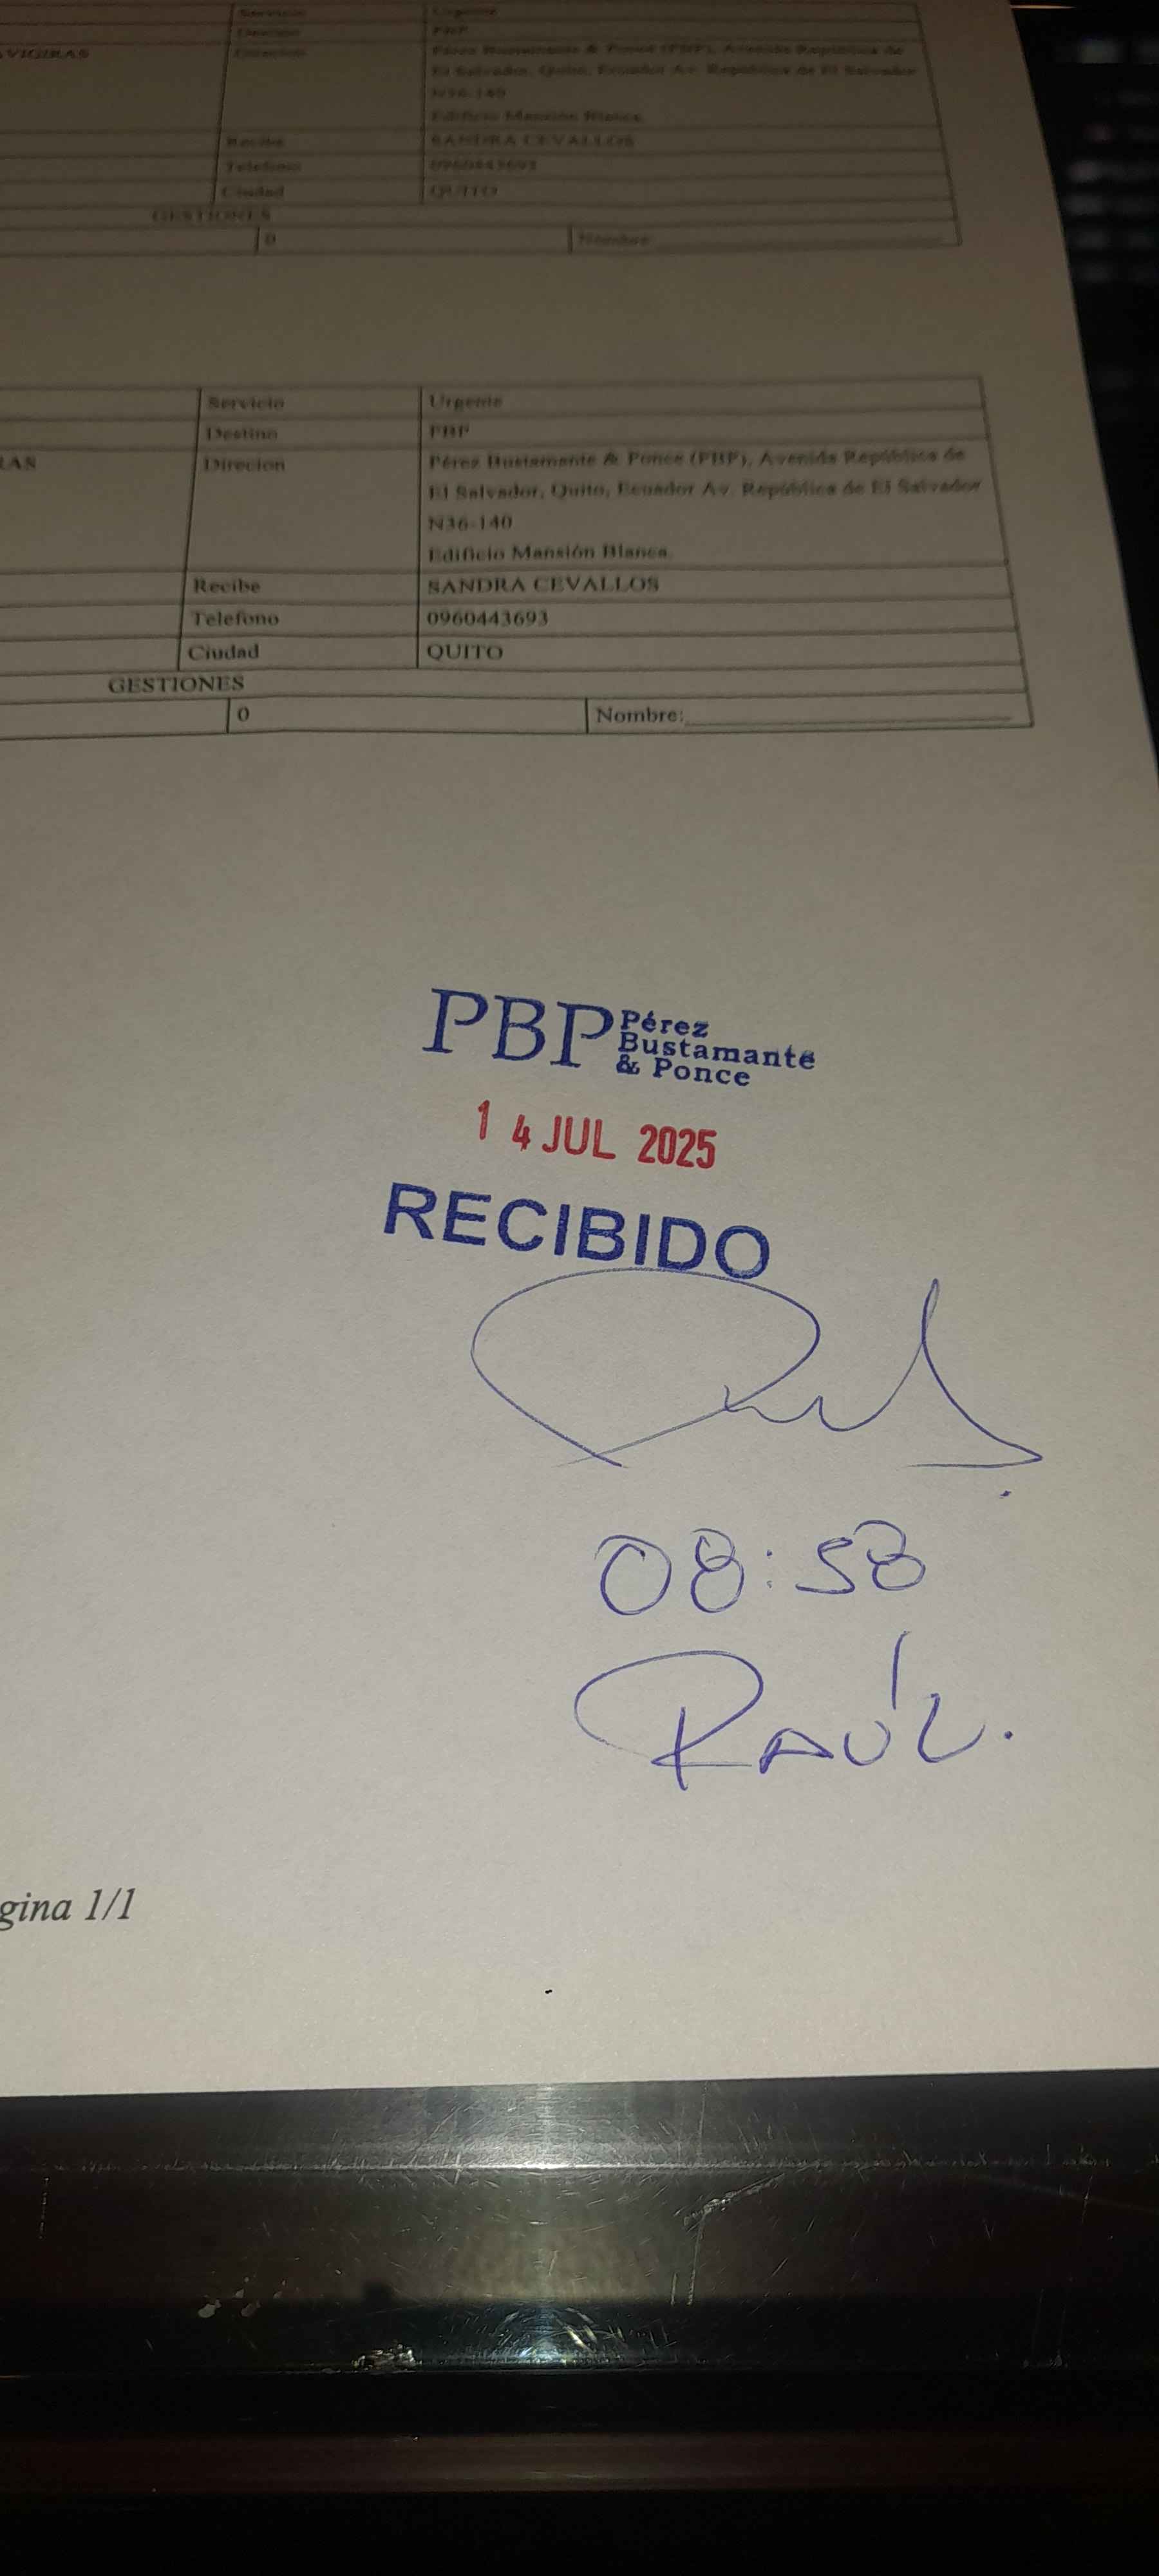 Servicio Urgente
Destino PBP
VIGIRAS Direcion Pérez Bustamante & Ponce (PBP), Avenida República de
El Salvador, Quito, Ecuador Av. República de El Salvador
N36-140
Edificio Mansión Blanca.
Recibe SANDRA CEVALLOS
Telefono 0960443693
Ciudad QUITO
GESTIONES
0 Nombre:
Servicio Urgente
Destino PBP
RAS Direcion Pérez Bustamante & Ponce (PBP), Avenida República de
El Salvador, Quito, Ecuador Av. República de El Salvador
N36-140
Edificio Mansión Blanca.
Recibe SANDRA CEVALLOS
Telefono 0960443693
Ciudad QUITO
GESTIONES
0 Nombre:
PBP Pérez
Bustamante
& Ponce
14 JUL 2025
RECIBIDO
08:58
RAÚL.
gina 1/1